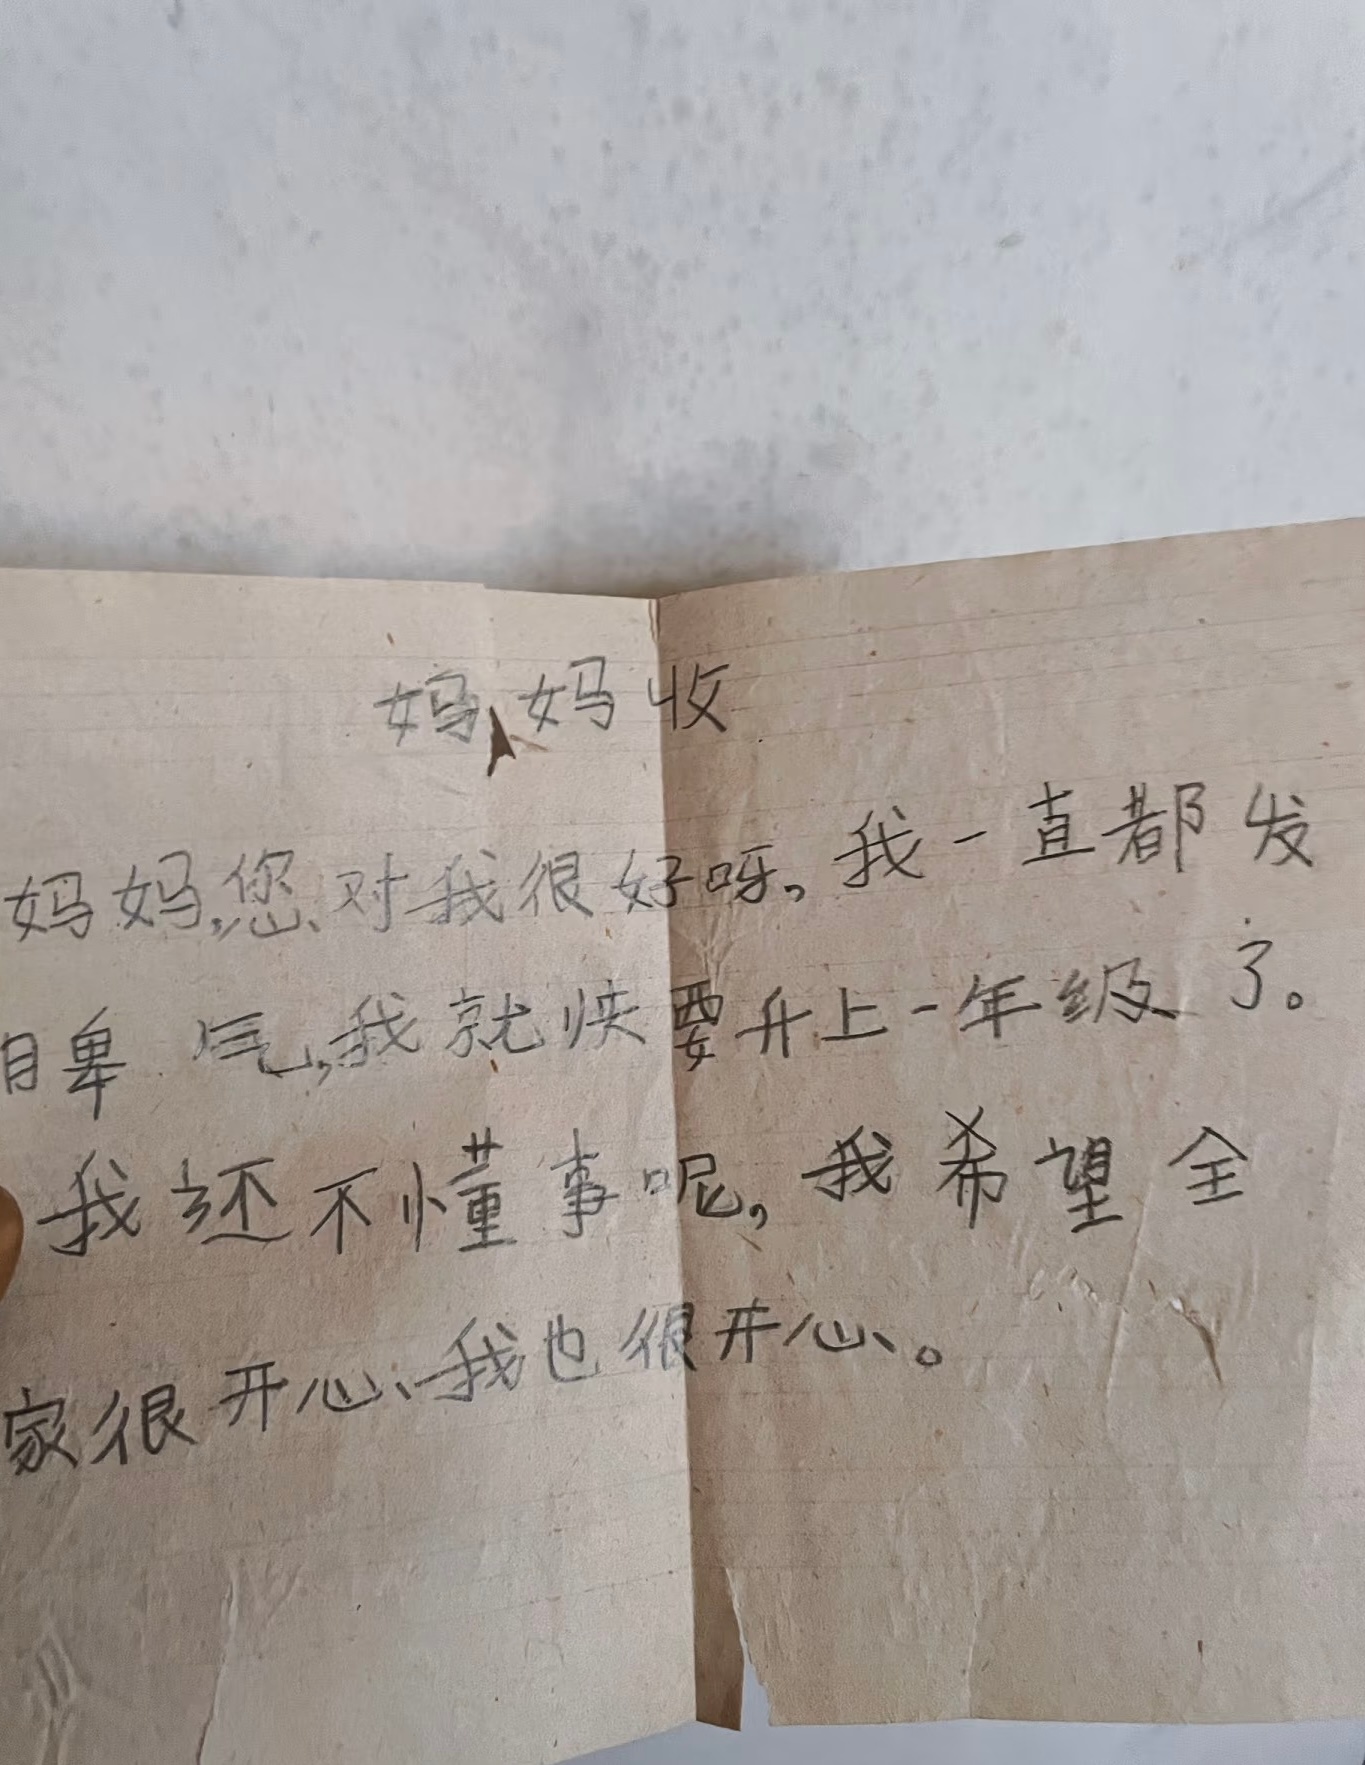 妈妈收
妈妈,您对我很好呀,我一直都发
脾气,我就快要升上一年级了。
我还不懂事呢,我希望全
家很开心、我也很开心。